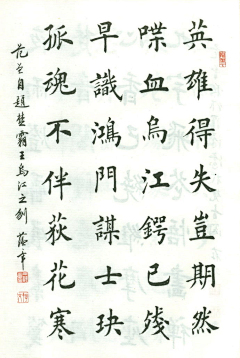 英雄得失豈期然
喋血烏江鍔已殘
早識鴻門謀士玦
孤魂不伴荻花寒
自題楚霸王烏江之刎